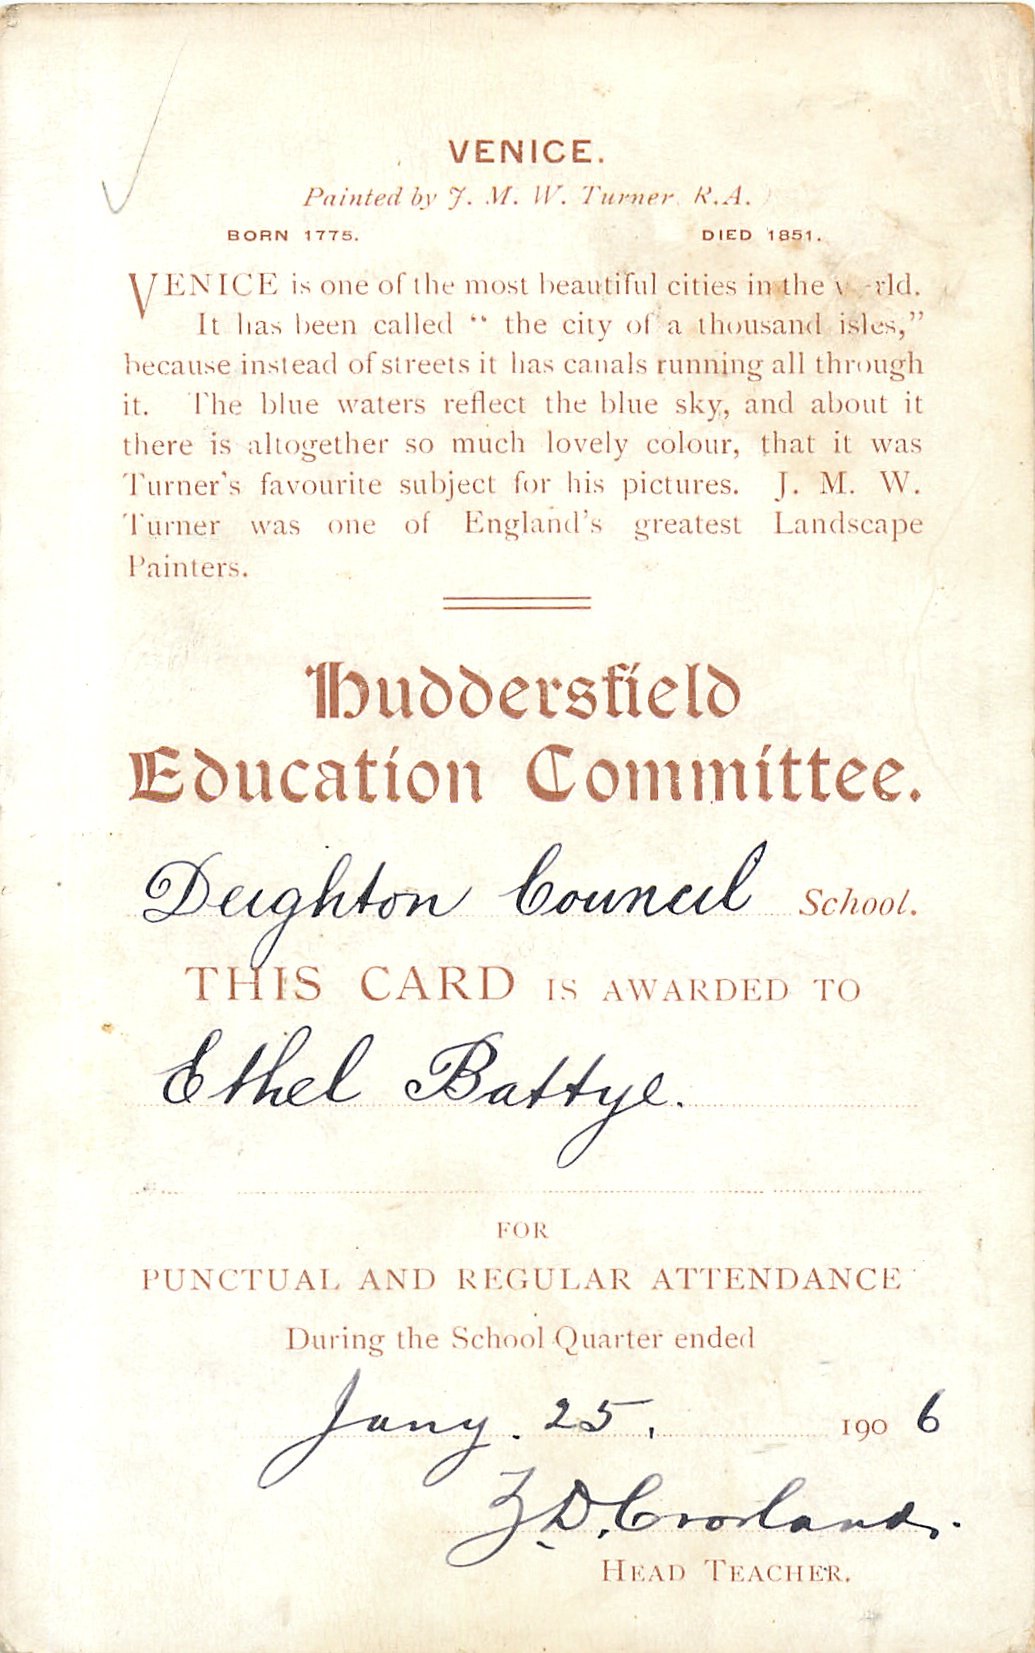 VENICE.
Painted by J. M. W. Turner R.A.
BORN 1775. DIED 1851.
VENICE is one of the most beautiful cities in the
It has been called “ the city of a thousand isles,”
because instead of streets it has canals running all through
it. The blue waters reflect the blue sky, and about it
there is altogether so much lovely colour, that it was
Turner's favourite subject for his pictures. J. M. W.
Turner was one of England's greatest Landscape
Painters.
Huddersfield
Education Committee.
Deighton Council School.
THIS CARD IS AWARDED TO
Ethel Battye.
FOR
PUNCTUAL AND REGULAR ATTENDANCE
During the School Quarter ended
Jany. 25, 1906
D. Crosland.
HEAD TEACHER.